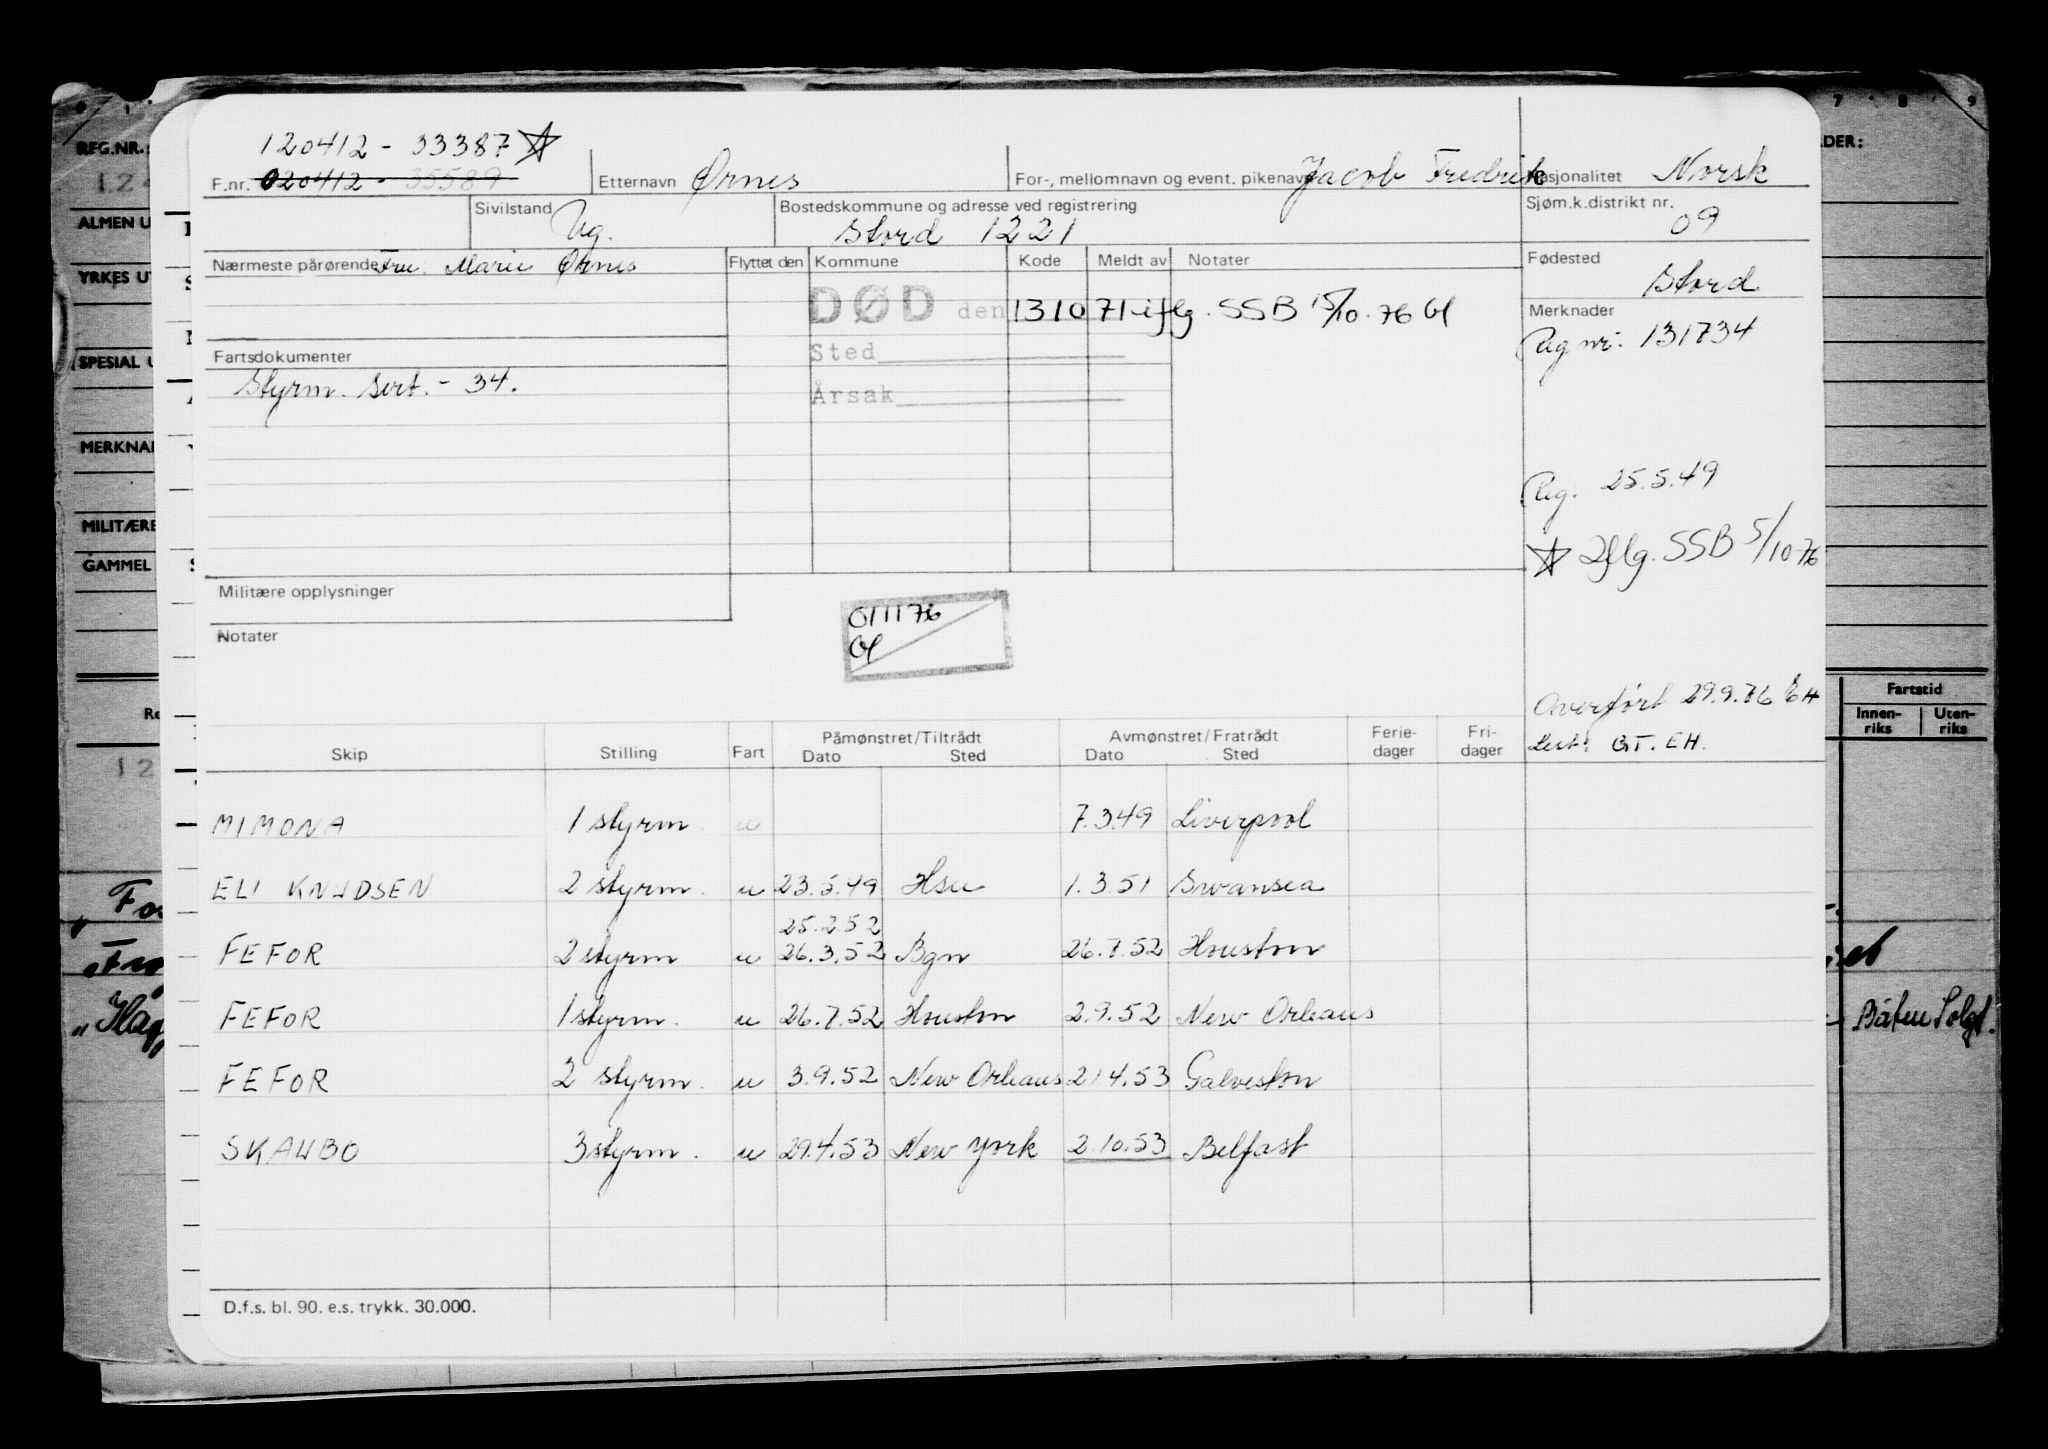 120412 - 33387 ☆
F.nr. 020412 - 35589 Etternavn Ørnes For-, mellomnavn og event. pikenavn Jacob Fredrik Nasjonalitet Norsk
Sivilstand Ug. Bostedskommune og adresse ved registrering Stord 1221 Sjøm.k.distrikt nr. 09
Nærmeste pårørende Fru. Marie Ørnes Flyttet den Kommune Kode Meldt av Notater Fødested Stord
DØD den 131071 iflg. SSB 15/10-76 Gl
Merknader
Reg nr: 131734
Sted
Fartsdokumenter
Styrm. Sert. - 34.
Årsak
Reg. 25.5.49
☆ Iflg. SSB 5/10-76
Militære opplysninger
011176
Gl
Notater
Overført 29.9.76 EH
BT. EH.
Skip Stilling Fart Påmønstret/Tiltrådt Dato Sted Avmønstret/Fratrådt Dato Sted Ferie-dager Fri-dager
MIMONA 1 styrm. u 7.3.49 Liverpool
ELI KNUDSEN 2 styrm. u 23.5.49 Hsu 1.3.51 Swansea
25.2.52
FEFOR 2 styrm u 26.3.52 Bgn 26.7.52 Houston
FEFOR 1 styrm. u 26.7.52 Houston 2.9.52 New Orleans
FEFOR 2 styrm. u 3.9.52 New Orleans 21.4.53 Galveston
SKAUBO 3 styrm. u 29.4.53 New York 2.10.53 Belfast
D.f.s. bl. 90. e.s. trykk. 30.000.
REG.NR.:
12
ALMEN U
YRKES UT
SPESIAL U
MERKNA
MILITÆRE
GAMMEL
12
7 8 9
DER:
Fartstid
Innen-riks Uten-riks
Båten Solgt.